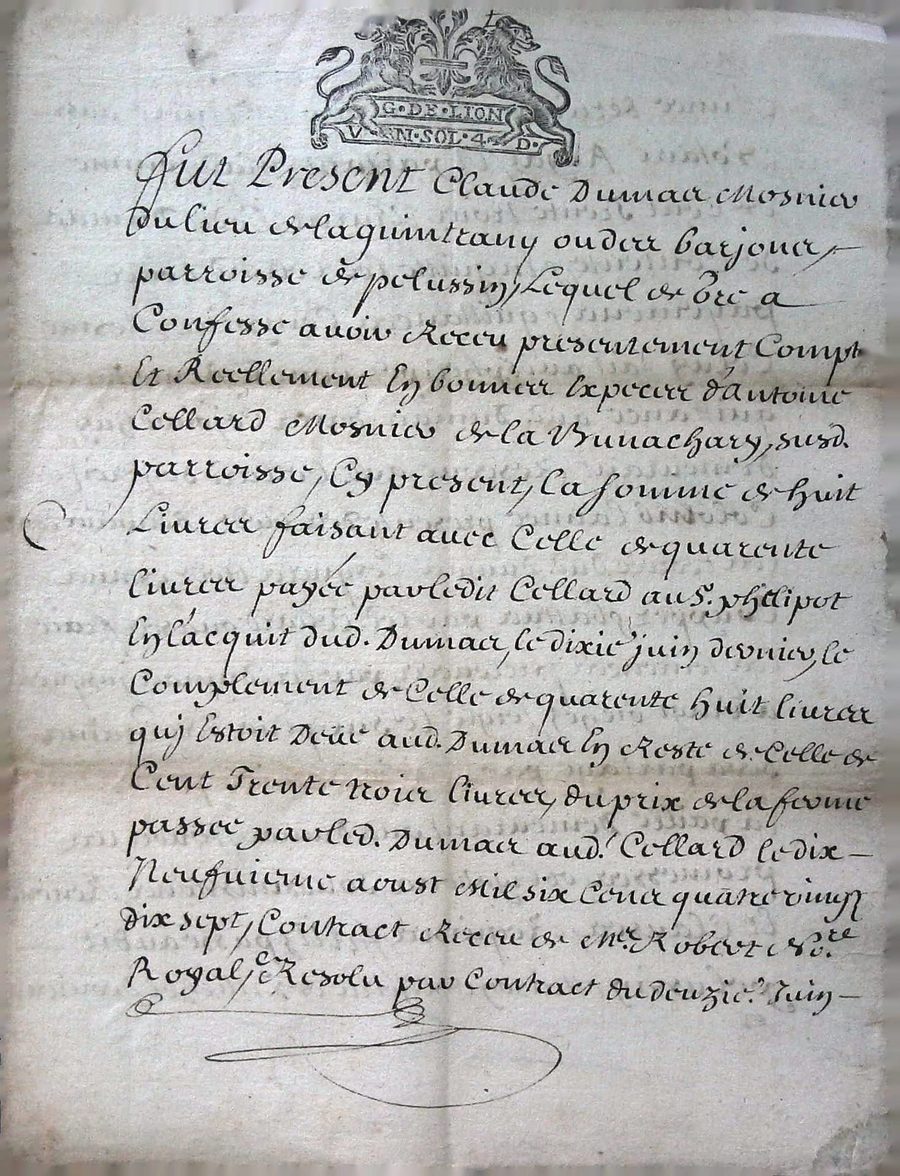 G·DE·LION
V N·SOL·4·D·
Fut Present Claude Dumas Mosnier
Du lieu de la quintrany ou des barjones
parroisse de pelussin, Lequel de gré a
Confesse avoir Receu presentement Compt
Et Reellement En bonnes Especes d'antoine
Cellard Mosnier de la susd.
parroisse, Cy present, La somme de huit
Livres faisant avec Celle de quarente
livres payée par ledit Cellard au Sr. phelipot
En l'acquit dud. Dumas, le dixie' juin dernier, le
Complement de Celle de quarente huit livres
quj Estoit Deüe aud. Dumas En Reste de Celle de
Cent Trente Trois livres, du prix de la ferme
passee par led. Dumas aud.' Cellard le dix
Neufvieme aoust Mil six Cens quatre vingt
Dix sept, Contract Receu de Me. Robert Nore.
Royal, & Resolu par Contract du deuzie.' Juin